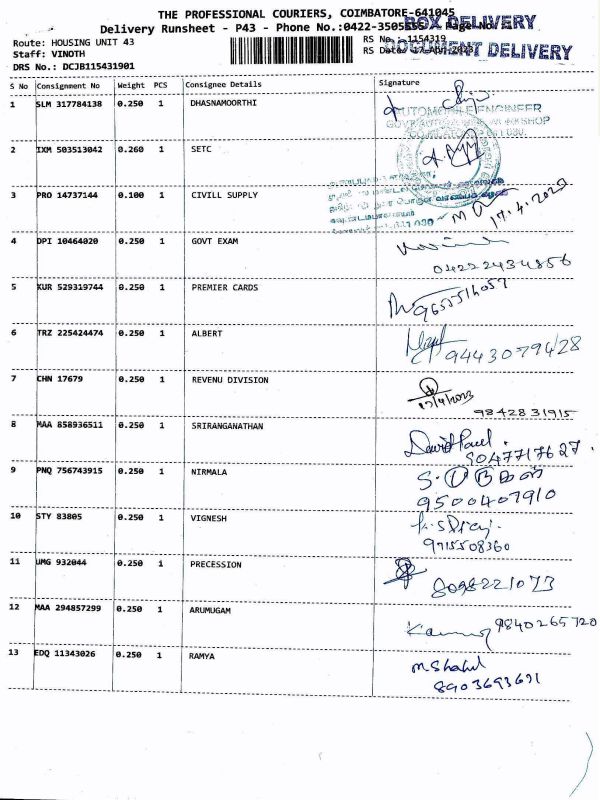 THE PROFESSIONAL COURIERS, COIMBATORE-641045
Delivery Runsheet - P43 - Phone No.:0422-3505555 Page No
BOX DELIVERY
Route: HOUSING UNIT 43 RS No. 1154319
Staff: VINOTH RS Date: 17-Apr-2023
DOCUMENT DELIVERY
DRS No.: DCJB115431901
S No Consignment No Weight PCS Consignee Details Signature
1 SLM 317784138 0.250 1 DHASNAMOORTHI
AUTOMOBILE ENGINEER
2 IXM 503513042 0.260 1 SETC
3 PRO 14737144 0.100 1 CIVILL SUPPLY
17.4.2023
4 DPI 10464020 0.250 1 GOVT EXAM
04222434856
5 KUR 529319744 0.250 1 PREMIER CARDS
9655516057
6 TRZ 225424474 0.250 1 ALBERT
9443079428
7 CHN 17679 0.250 1 REVENU DIVISION
17/4/2023
9842831915
8 MAA 858936511 0.250 1 SRIRANGANATHAN
9047717627.
9 PNQ 756743915 0.250 1 NIRMALA
9500407910
10 STY 83805 0.250 1 VIGNESH
9715508360
11 UMG 932044 0.250 1 PRECESSION
8098221073
12 MAA 294857299 0.250 1 ARUMUGAM
9840265720
13 EDQ 11343026 0.250 1 RAMYA
8903693691